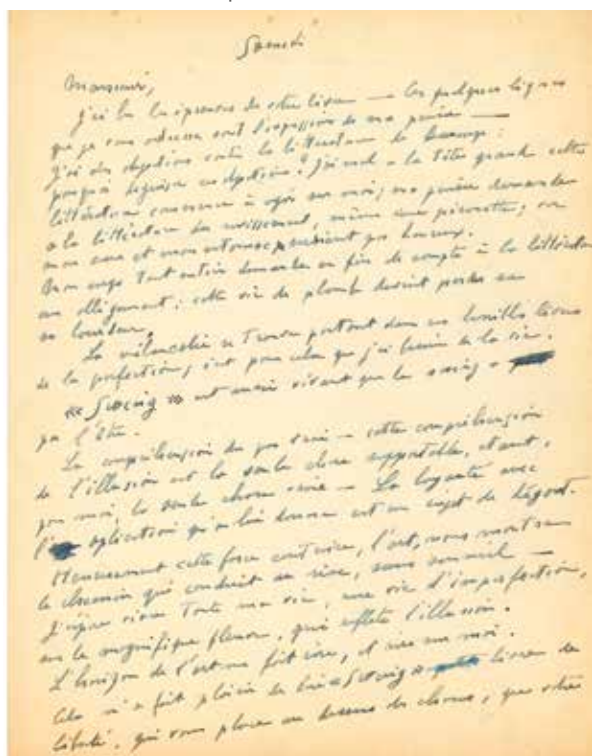 Samedi
Monsieur,
J'ai lu les épreuves de votre livre — les quelques lignes
que je vous adresse sont l'expression de ma pensée —
J'ai des objections contre la littérature
pourquoi
littérature commence à agir sur moi; ma pensée demande
à la littérature un
mon âme et mon estomac pas heureux.
Mon corps tout entier demande en fin de compte à la littérature
un allègement: cette vie de plomb devrait perdre sa
lourdeur.
La mélancolie se trouve partout dans ces terribles leçons
de la perfection, c'est pour cela que j'ai besoin de la vie.
« Swing » est aussi vivant que le swing
l'être.
La compréhension du pas vrai — cette compréhension
de l'illusion est la seule chose supportable, étant,
pour moi, la seule chose vraie — La loyauté avec
l'explication qu'on lui donne est un sujet de dégoût.
Heureusement cette force contraire, l'art, nous montre
le chemin qui conduit au rire, sans sommeil —
J'espère vivre toute ma vie, une vie d'imperfection,
sur le magnifique fleuve, qui reflète l'illusion.
L'horizon de l'art me fait rire, et rire sur moi.
Cela m'a fait plaisir de lire « Swing » livre de
liberté, qui vous place au dessus des choses, que votre